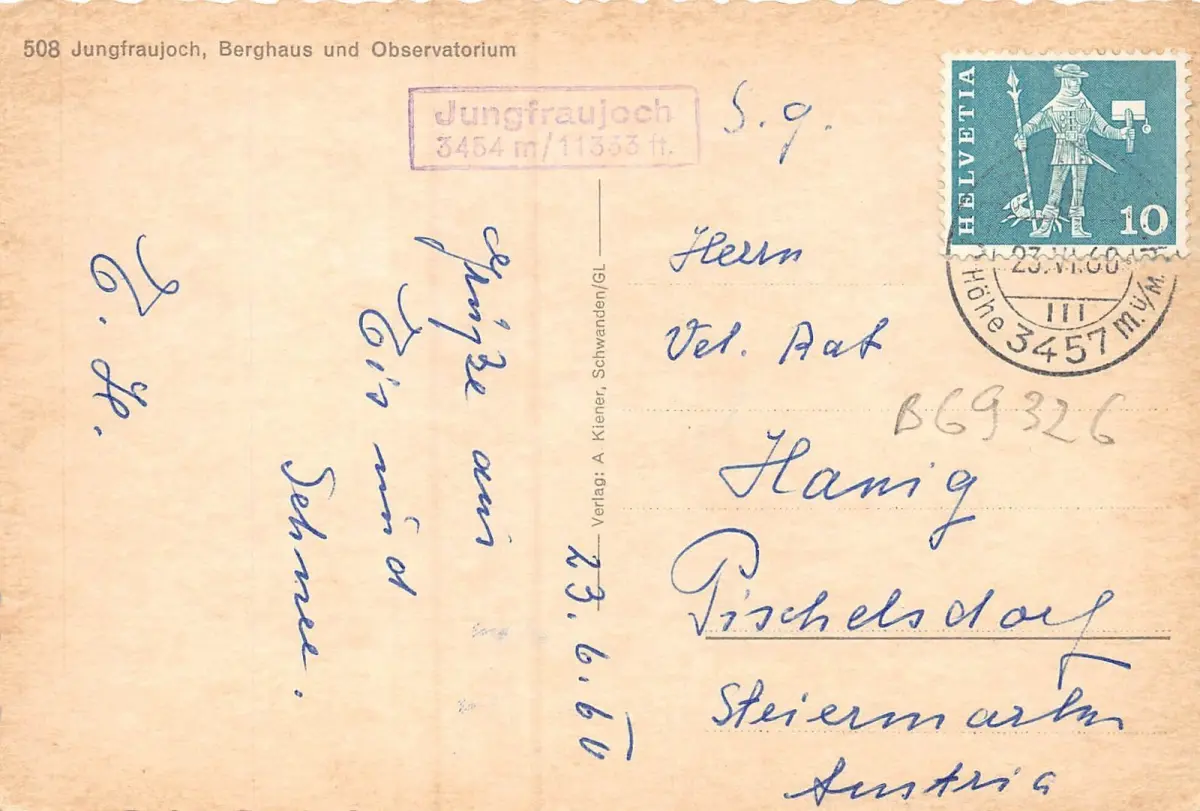 508 Jungfraujoch, Berghaus und Observatorium
Jungfraujoch
3454 m/11333 ft.
HELVETIA
10
23.VI.60
III
Höhe 3457 m.ü/M.
23. 6. 60
Grüße aus
Eis und
Schnee.
Verlag: A Kiener, Schwanden/GL
S. g.
Herrn
Vet. Rat
B69326
Hanig
Pischelsdorf
Steiermark
Austria